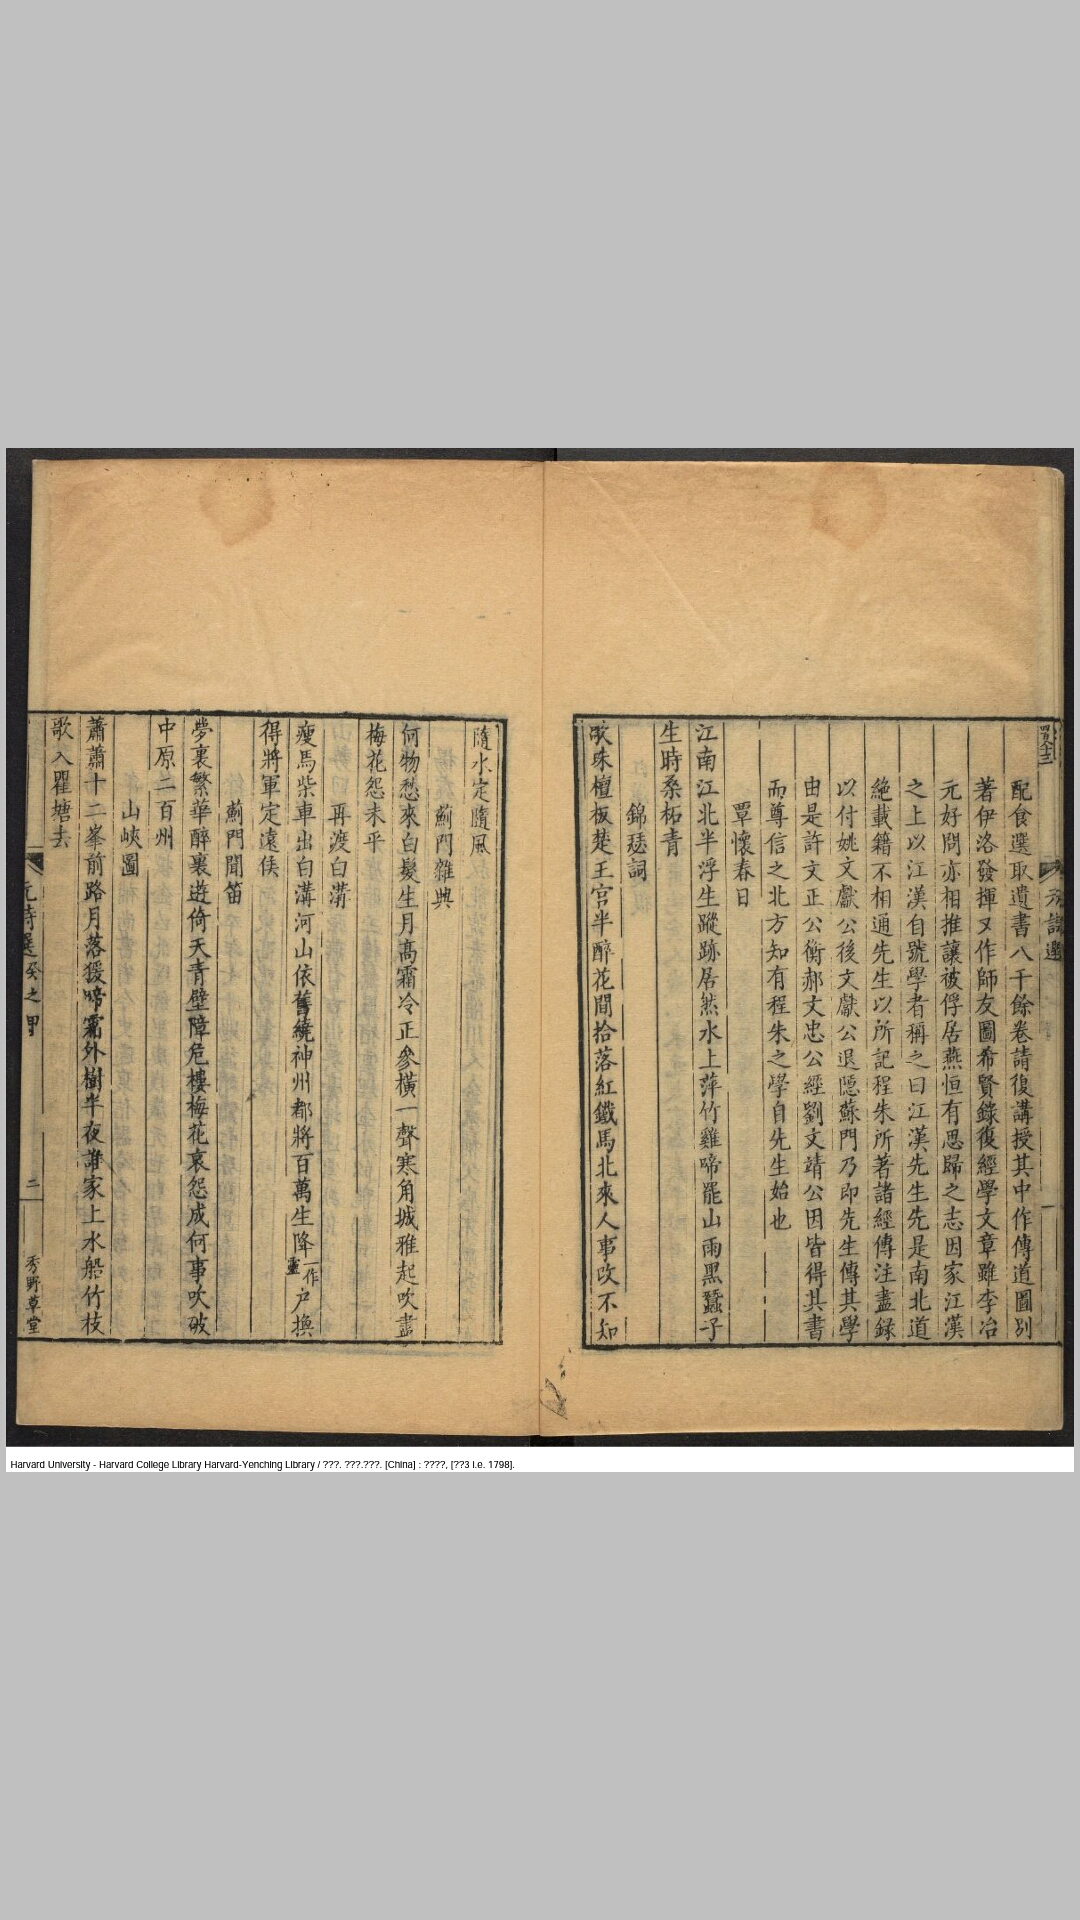 配食選取遺書八千餘卷請復講授其中作傳道圖別
著伊洛發揮又作師友圖希賢錄復經學文章雖李冶
元好問亦相推讓被俘居燕恒有思歸之志因家江漢
之上以江漢自號學者稱之曰江漢先生先是南北道
絕載籍不相通先生以所記程朱所著諸經傳注盡錄
以付姚文獻公後文獻公退隱蘇門乃即先生傳其學
由是許文正公衡郝文忠公經劉文靖公因皆得其書
而尊信之北方知有程朱之學自先生始也
覃懷春日
江南江北半浮生蹤跡居然水上萍竹雞啼罷山雨黑蠶子
生時桑柘青
錦瑟詞
皎珠檀板楚王宮半醉花間拾落紅鐵馬北來人事改不知
隨水定隨風
薊門雜興
何物愁來白髮生月高霜冷正參橫一聲寒角城雅起吹盡
梅花怨未平
再渡白溝
瘦馬柴車出白溝河山依舊繞神州都將百萬生降一作靈户換
得將軍定遠侯
薊門聞笛
夢裏繁華醉裏遊倚天青壁障危樓梅花哀怨成何事吹破
中原二百州
山峽圖
蕭蕭十二峯前路月落猨啼霜外樹半夜誰家上水船竹枝
歌入瞿塘去
元詩選癸之甲
二
秀野草堂
Harvard University - Harvard College Library Harvard-Yenching Library / ???. ???.???. [China] : ????, [??3 i.e. 1798].